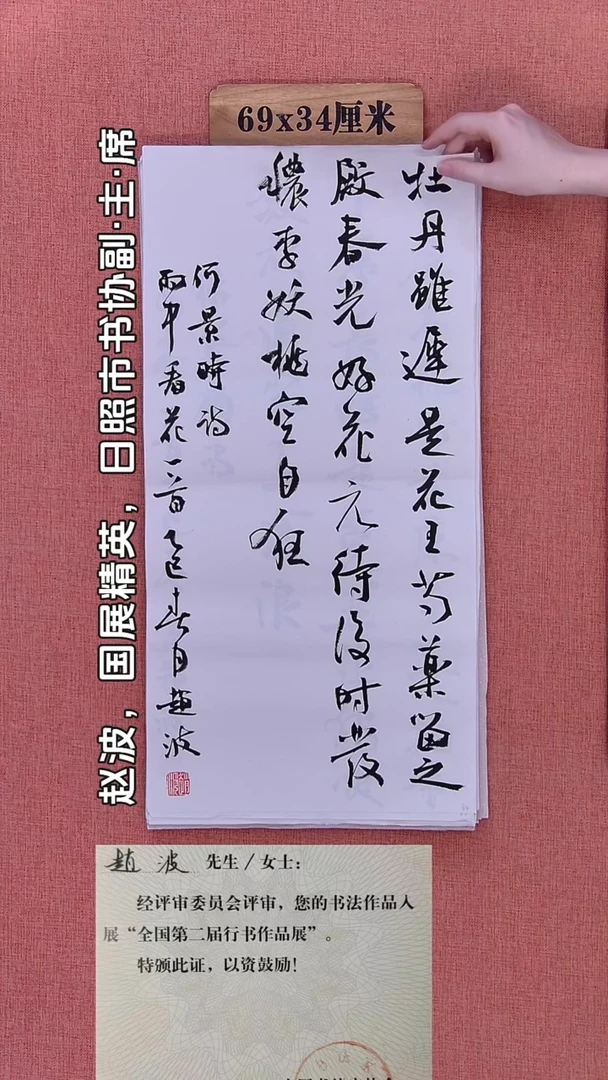 69x34厘米
牡丹雖遲是花王芍藥留之
殿春光好花元待後时發
穠李妖桃空自狂
何景時詩
雨中看花一首乙巳春月趙波
赵波，国展精英，日照市书协副·主·席
趙波 先生/女士：
经评审委员会评审，您的书法作品入
展“全国第二届行书作品展”。
特颁此证，以资鼓励！